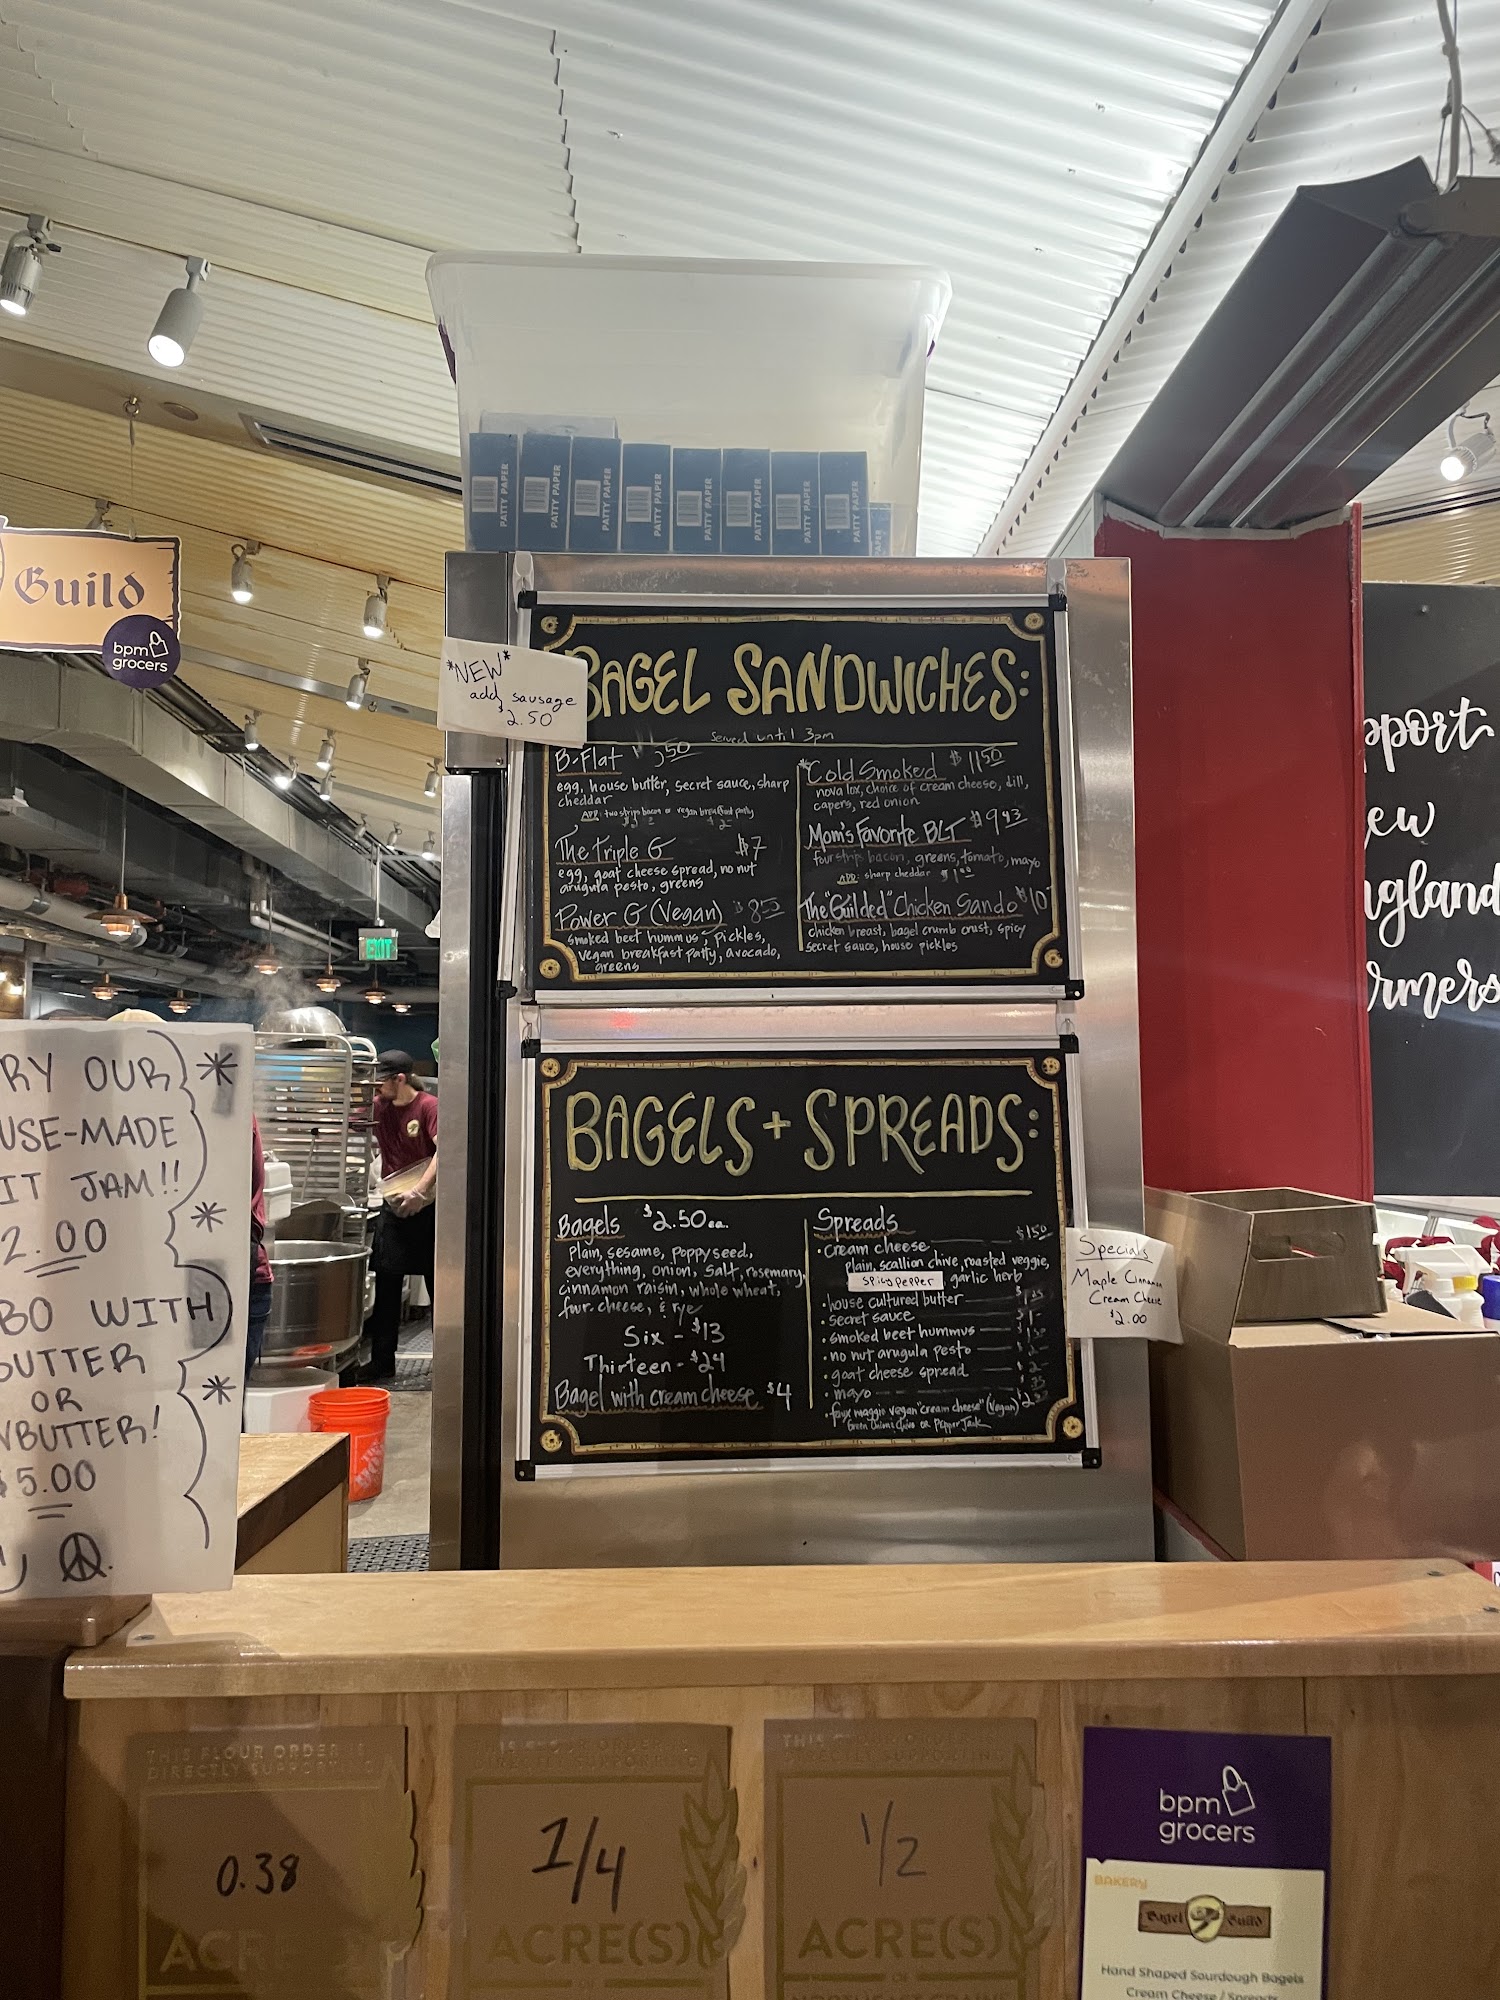 PATTY PAPER
PATTY PAPER
PATTY PAPER
PATTY PAPER
PATTY PAPER
PATTY PAPER
PATTY PAPER
PATTY PAPER
PAPER
Guild
bpm
grocers
EXIT
*NEW*
add sausage
$2.50
BAGEL SANDWICHES:
Served until 3pm
B-Flat
egg, house butter, secret sauce, sharp
cheddar
ADD: two strips bacon or vegan breakfast patty
The Triple G $7
egg, goat cheese spread, no nut
arugula pesto, greens
Power G (Vegan)
smoked beet hummus, pickles,
vegan breakfast patty, avocado,
greens
*Cold Smoked $11.50
nova lox, choice of cream cheese, dill,
capers, red onion
Mom's Favorite BLT
four strips bacon, greens, tomato, mayo
ADD: sharp cheddar $1.00
The "Guilded" Chicken Sando $10
chicken breast, bagel crumb crust, spicy
secret sauce, house pickles
BAGELS + SPREADS:
Bagels $2.50 ea.
plain, sesame, poppyseed,
everything, onion, salt, rosemary,
cinnamon raisin, whole wheat,
four cheese, & rye
Six - $13
Thirteen - $24
Bagel with cream cheese $4
Spreads
• cream cheese $1.50
plain, scallion chive, roasted veggie,
spicy pepper garlic herb
• house cultured butter
• secret sauce
• smoked beet hummus
• no nut arugula pesto
• goat cheese spread
• mayo
• faux maggio vegan "cream cheese" (vegan)
Specials
Maple Cinnamon
Cream Cheese
$2.00
RY OUR
USE-MADE
IT JAM!!
2.00
BO WITH
BUTTER
OR
BUTTER!
$5.00
pport
ew
ngland
rmers
THIS FLOUR ORDER IS
DIRECTLY SUPPORTING
0.38
ACRE
DIRECTLY SUPPORTING
1/4
ACRE(S)
THIS
DIRECTLY SUPPORTING
1/2
ACRE(S)
OF
NORTHEAST GRAINS
bpm
grocers
BAKERY
Bagel Guild
Hand Shaped Sourdough Bagels
Cream Cheese / Spreads